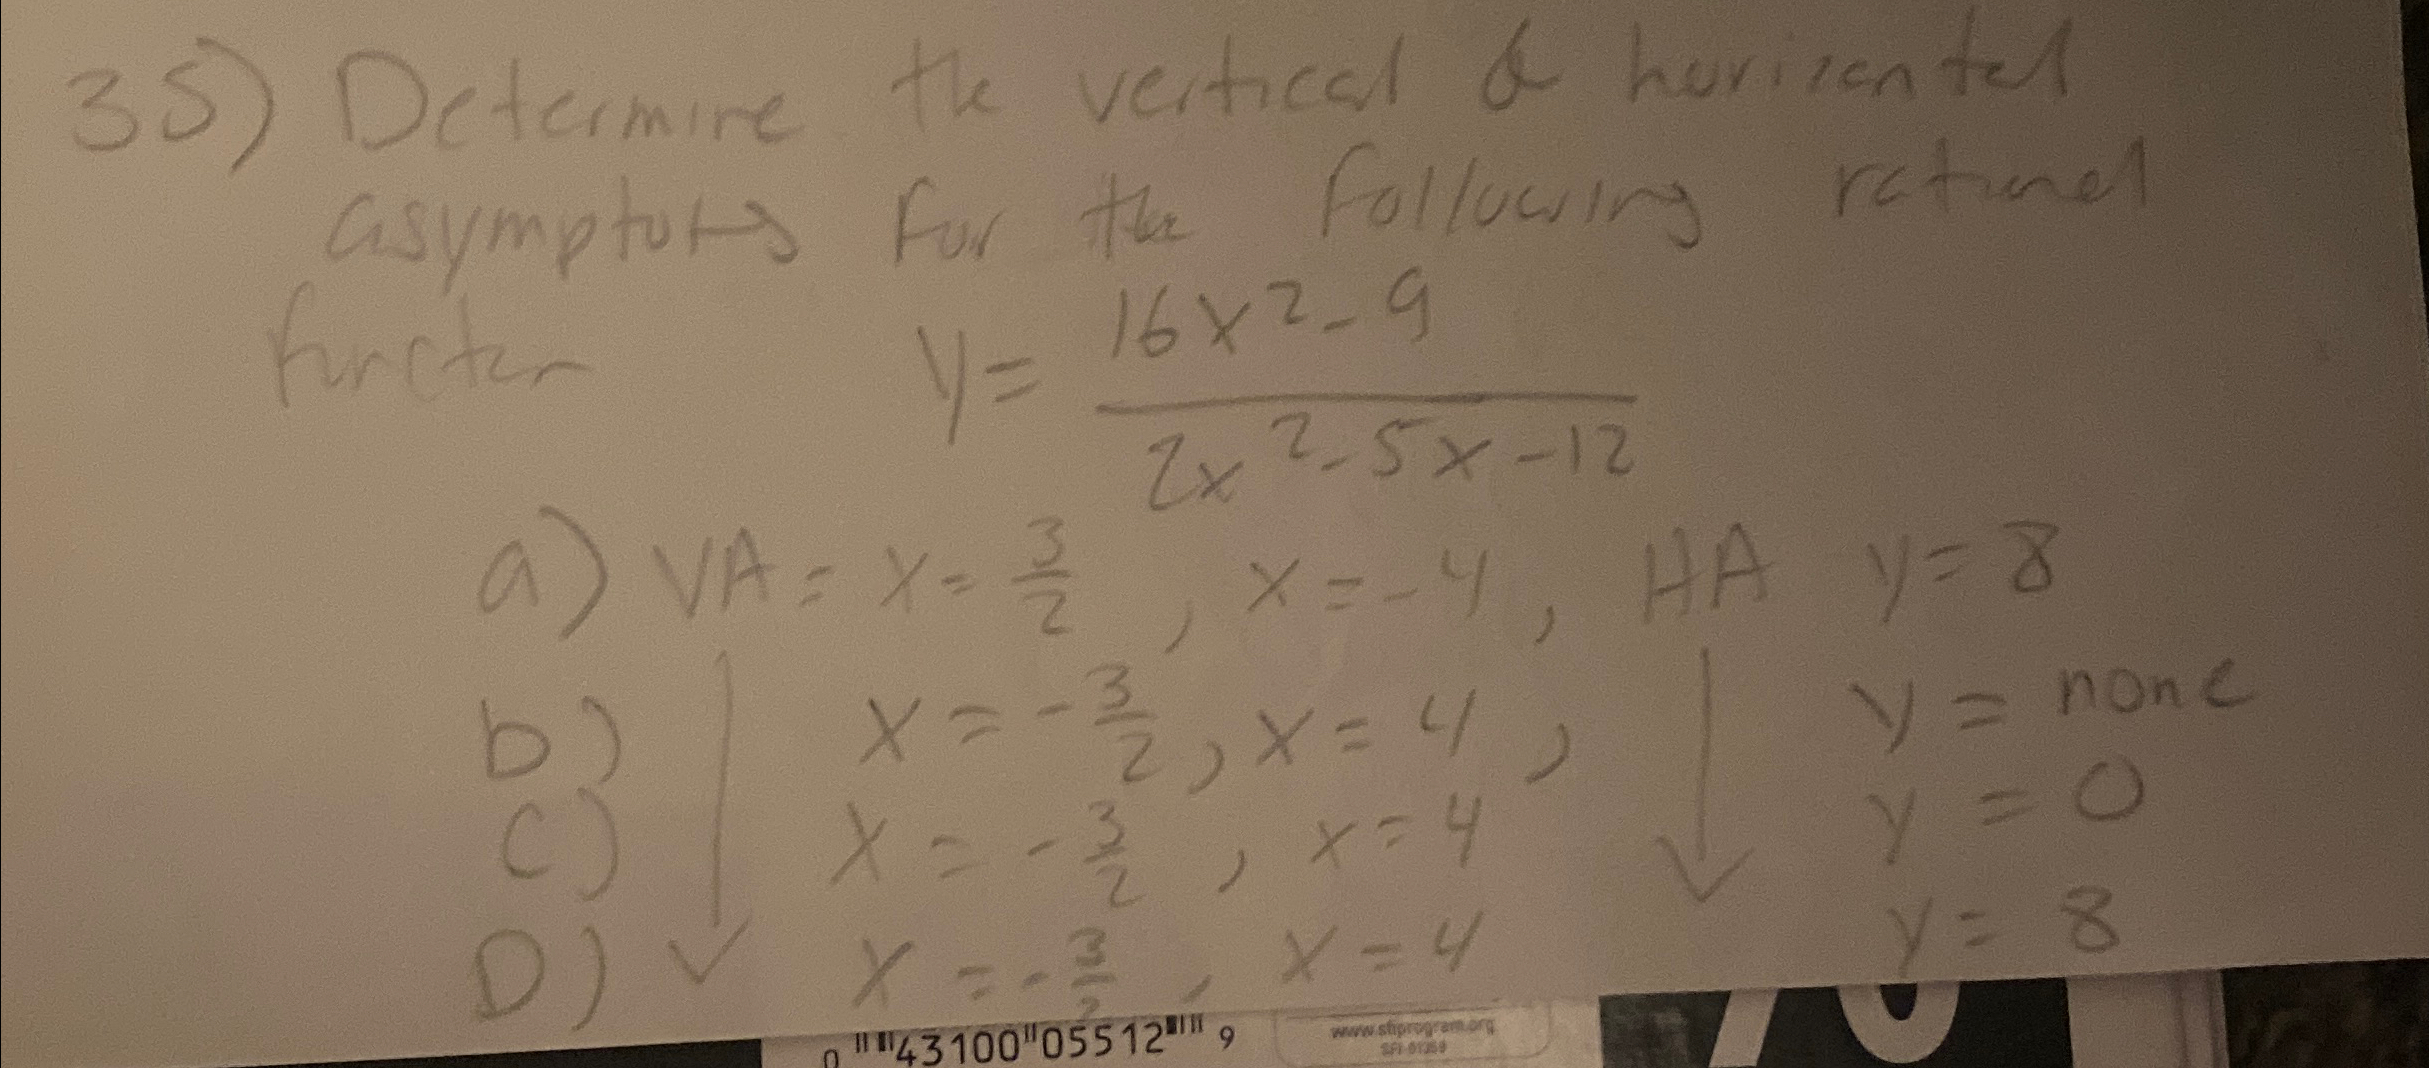 35) Determine the vertical & horizontal
asymptotes for the following rational
function y = 16x² - 9
2x² - 5x - 12
a) VA = x = 3/2 , x = -4 , HA y = 8
b) x = -3/2 , x = 4 , y = none
C) x = -3/2 , x = 4 y = 0
D) x = -3/2 , x = 4 y = 8
0 43100 05512 9
www.sfiprogram.org